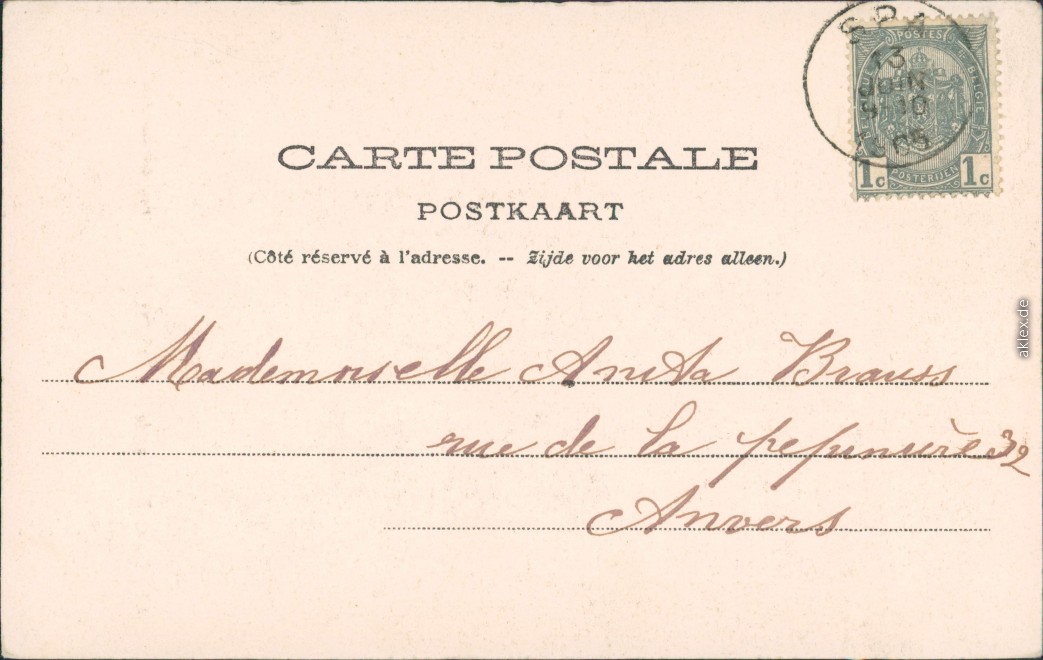 SPA
13
JUIN
9-10
POSTES
BELGIQUE
BELGIE
POSTERIJEN
1c 1c
CARTE POSTALE
POSTKAART
(Côté réservé à l'adresse. -- Zijde voor het adres alleen.)
aklex.de
Mademoiselle Anita Brauss
rue de la pepinière 32
Anvers